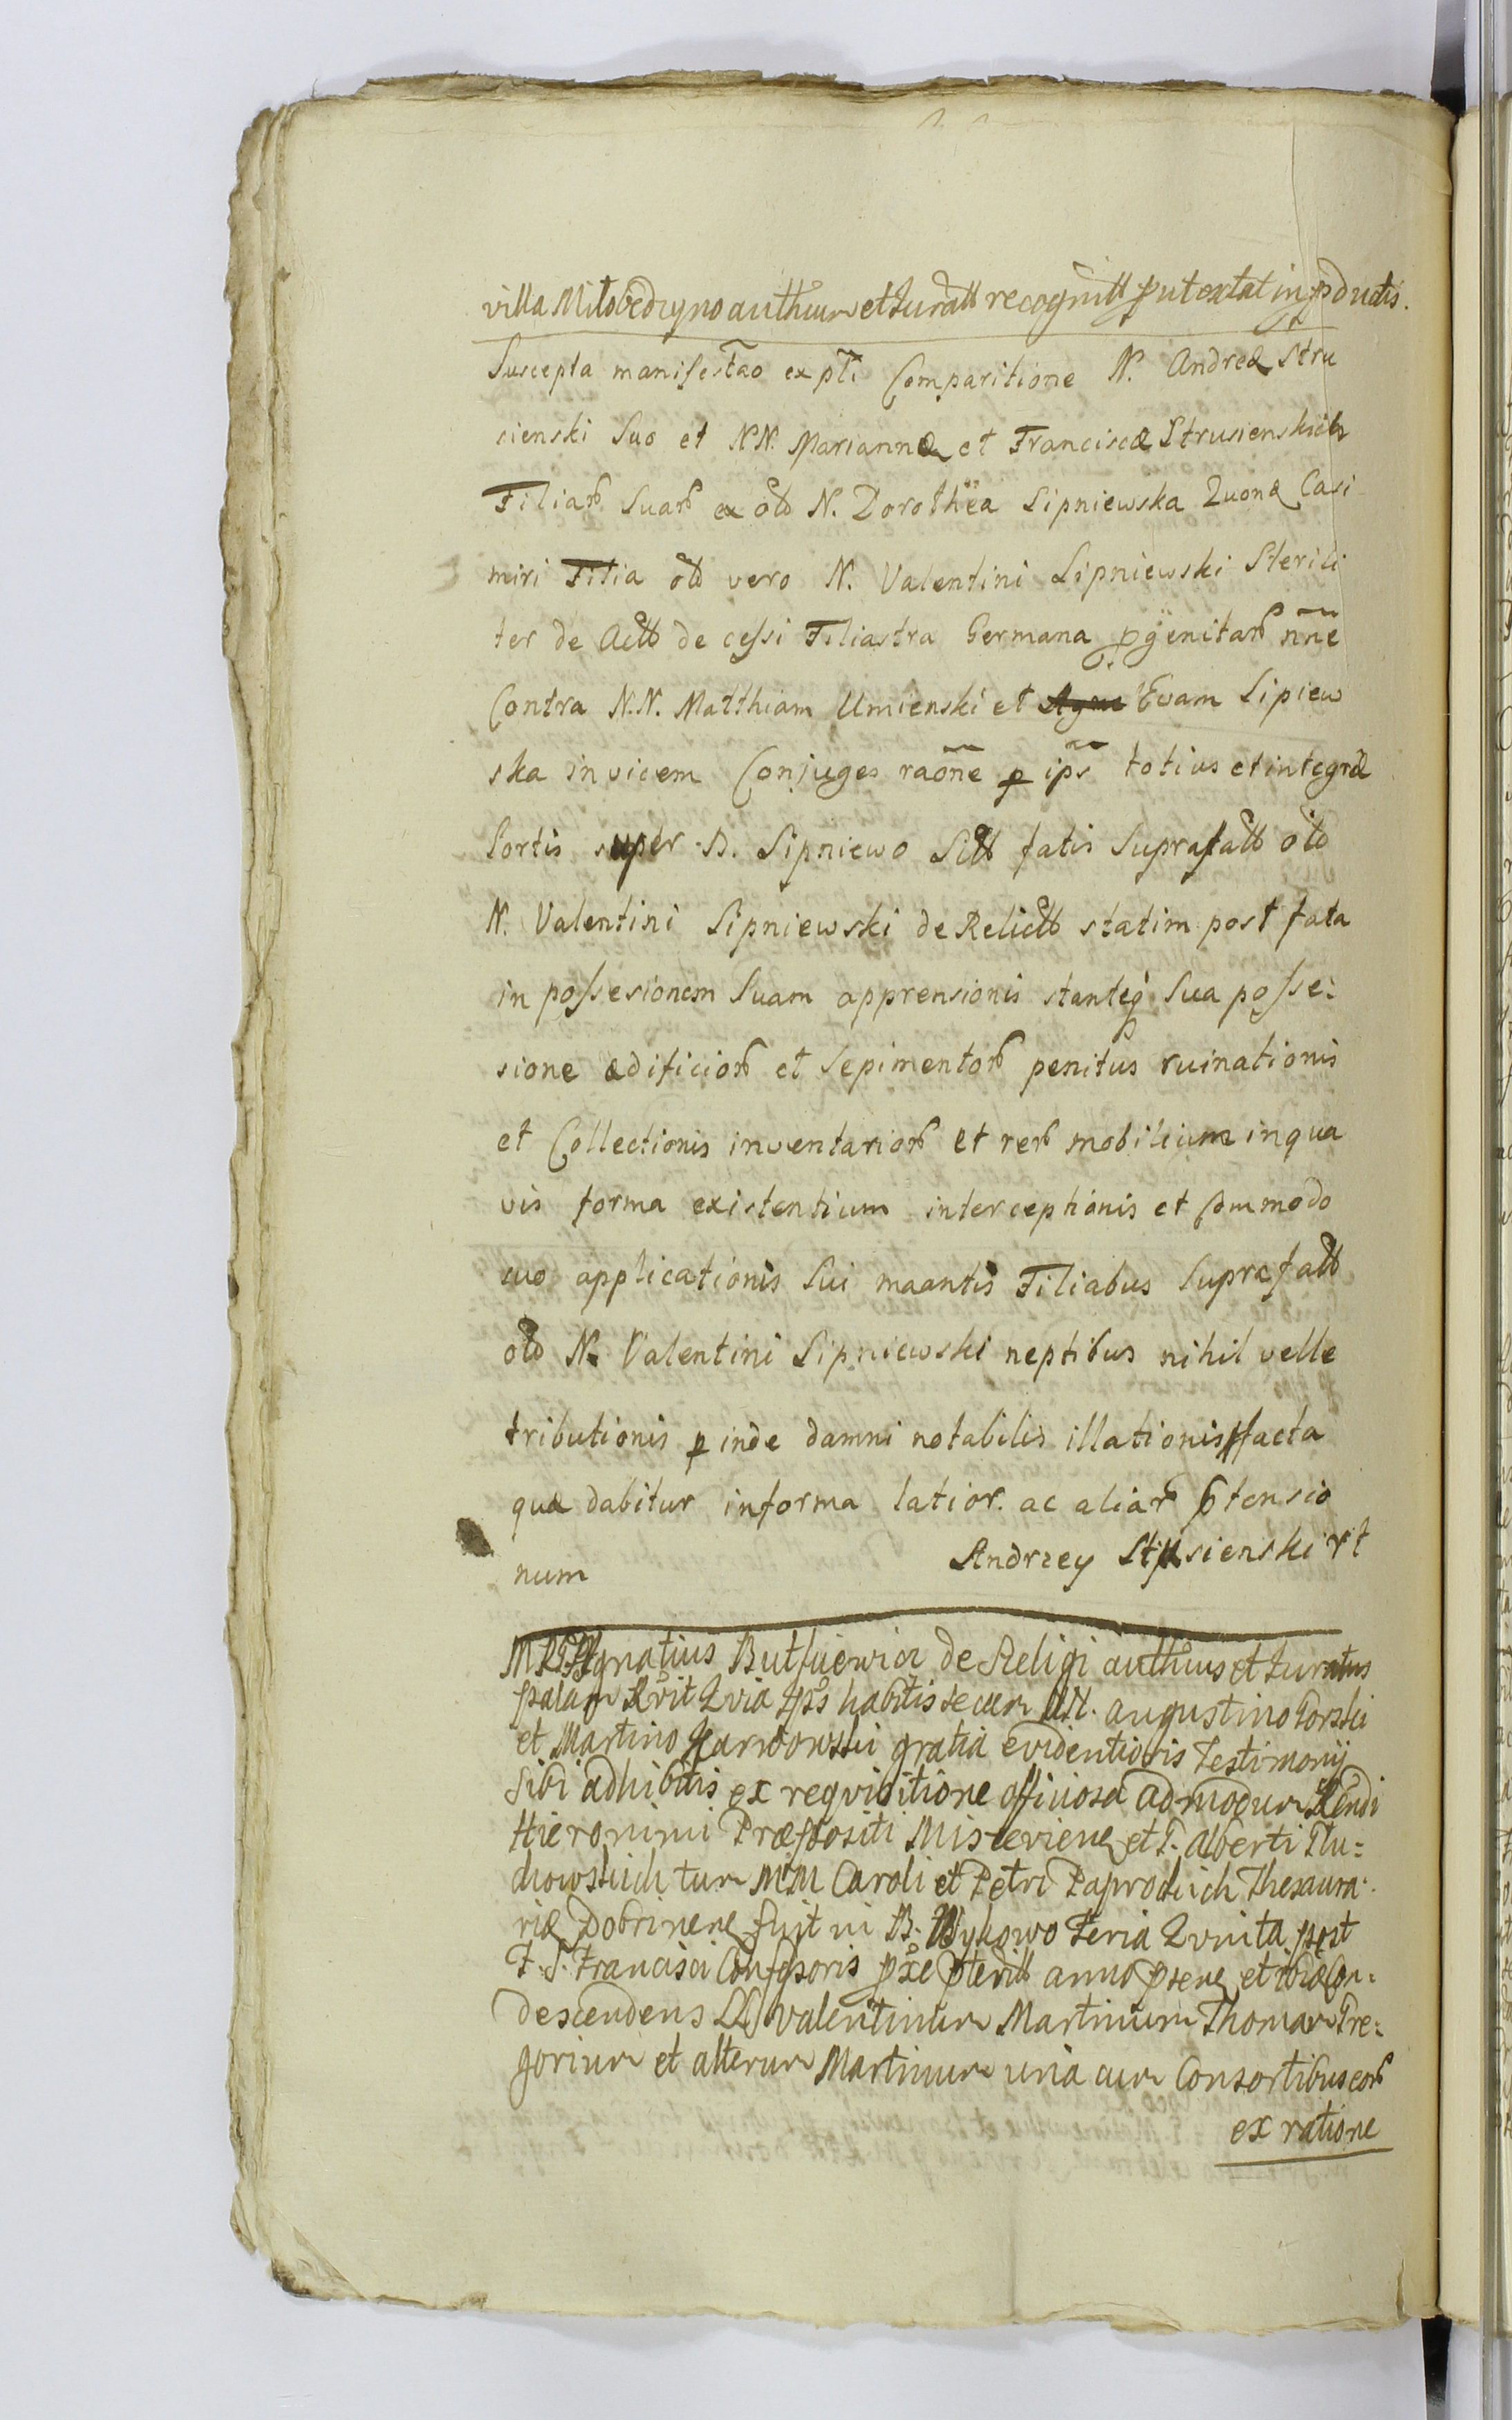 villa Miłobędzyno authcum et Juratt recognitt put extat in pductis.
Suscepta manifestao ex pti Comparitione N. Andreæ Stru
sienski Suo et NN. Mariannæ et Franciscæ Strusienskich
Filiar Suar ex old N. Dorothëa Lipniewska Quonæ Casi
miri Filia old vero N. Valentini Lipniewski Sterili
ter de Actt de cessi Filiastra Germana pgenitar nne
Contra N.N. Matthiam Umienski et Evam Lipiew
ska invicem Conjuges raone p ips totius et integræ
Sortis super B. Lipniewo Sitt fatis Suprafatt old
N. Valentini Lipniewski de Relictt statim post fata
in possesionem Suam apprensionis stanteq Sua posse:
sione ædificior et Sepimentor penitus ruinationis
et Collectionis inventarior et rer mobilium inqua
vis forma existentium interceptionis et Commodo
suo applicationis Sui maantis Filiabus Suprafatt
old N. Valentini Lipniewski neptibus nihil velle
tributionis p inde damni notabilis illationis facta
qua dabitur informa latior. ac aliar ptensio
num Andrzey Strusienski
Ignatius Butkiewicz de Religi authcus et Juratus
palam Rvit Quia Ips habitis secum NN. Augustino Gorski
et Martino Karwowski gratia evidentioris Testimonij
Sibi adhibitis ex requisitione officiosa admodum Rendi
Hieronimi Præpositi Misceviene et G. Alberti Tłu:
chowskich tum MM Caroli et Petri Paprockich Thesaura
riæ Dobrinene fuit in B. Wykowo Feria Quinta post
F. S. Francisci Confessoris pxe pteritt anno psene et ibid Con:
descendens LL Valentinum Martinum Thomam Gre:
gorium et alterum Martinum una cum Consortibus eor
ex ratione